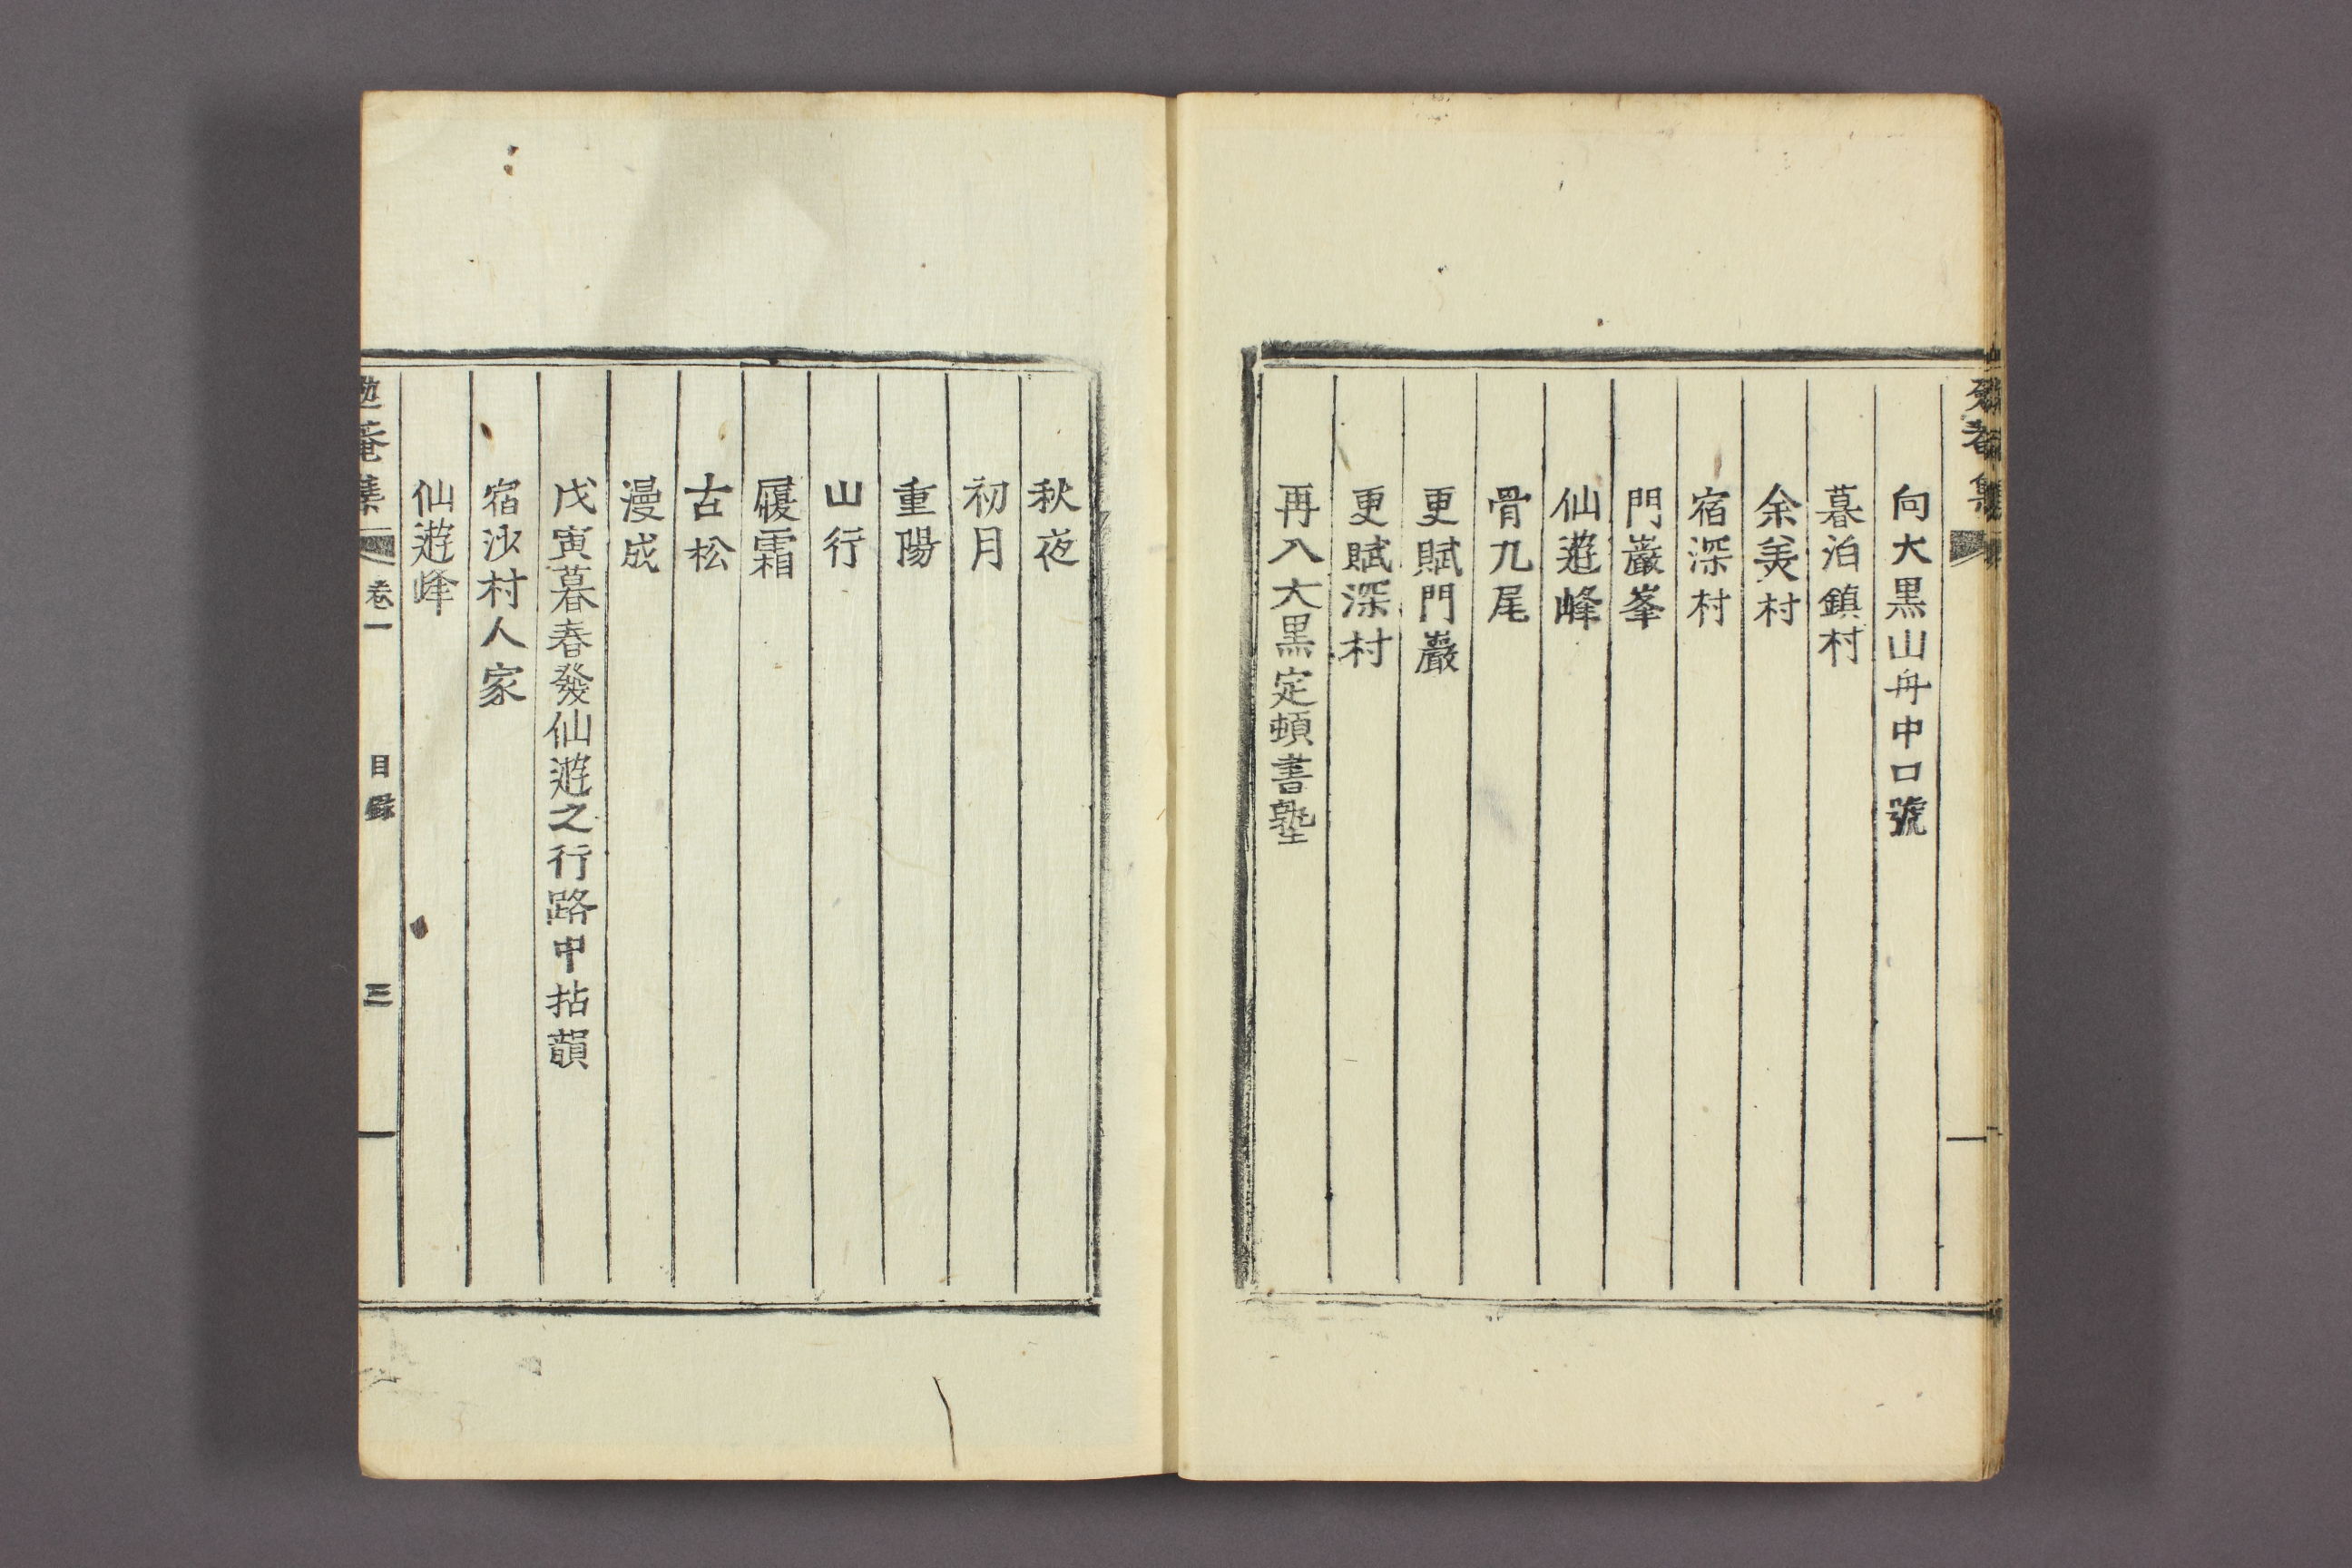 向大黑山舟中口號
暮泊鎮村
余美村
宿深村
門巖峯
仙遊峰
骨九尾
更賦門巖
更賦深村
再入大黑定頓書塾
秋夜
初月
重陽
山行
履霜
古松
漫成
戊寅暮春發仙遊之行路中拈韻
宿沙村人家
仙遊峰
勉菴集 卷一 目錄 三